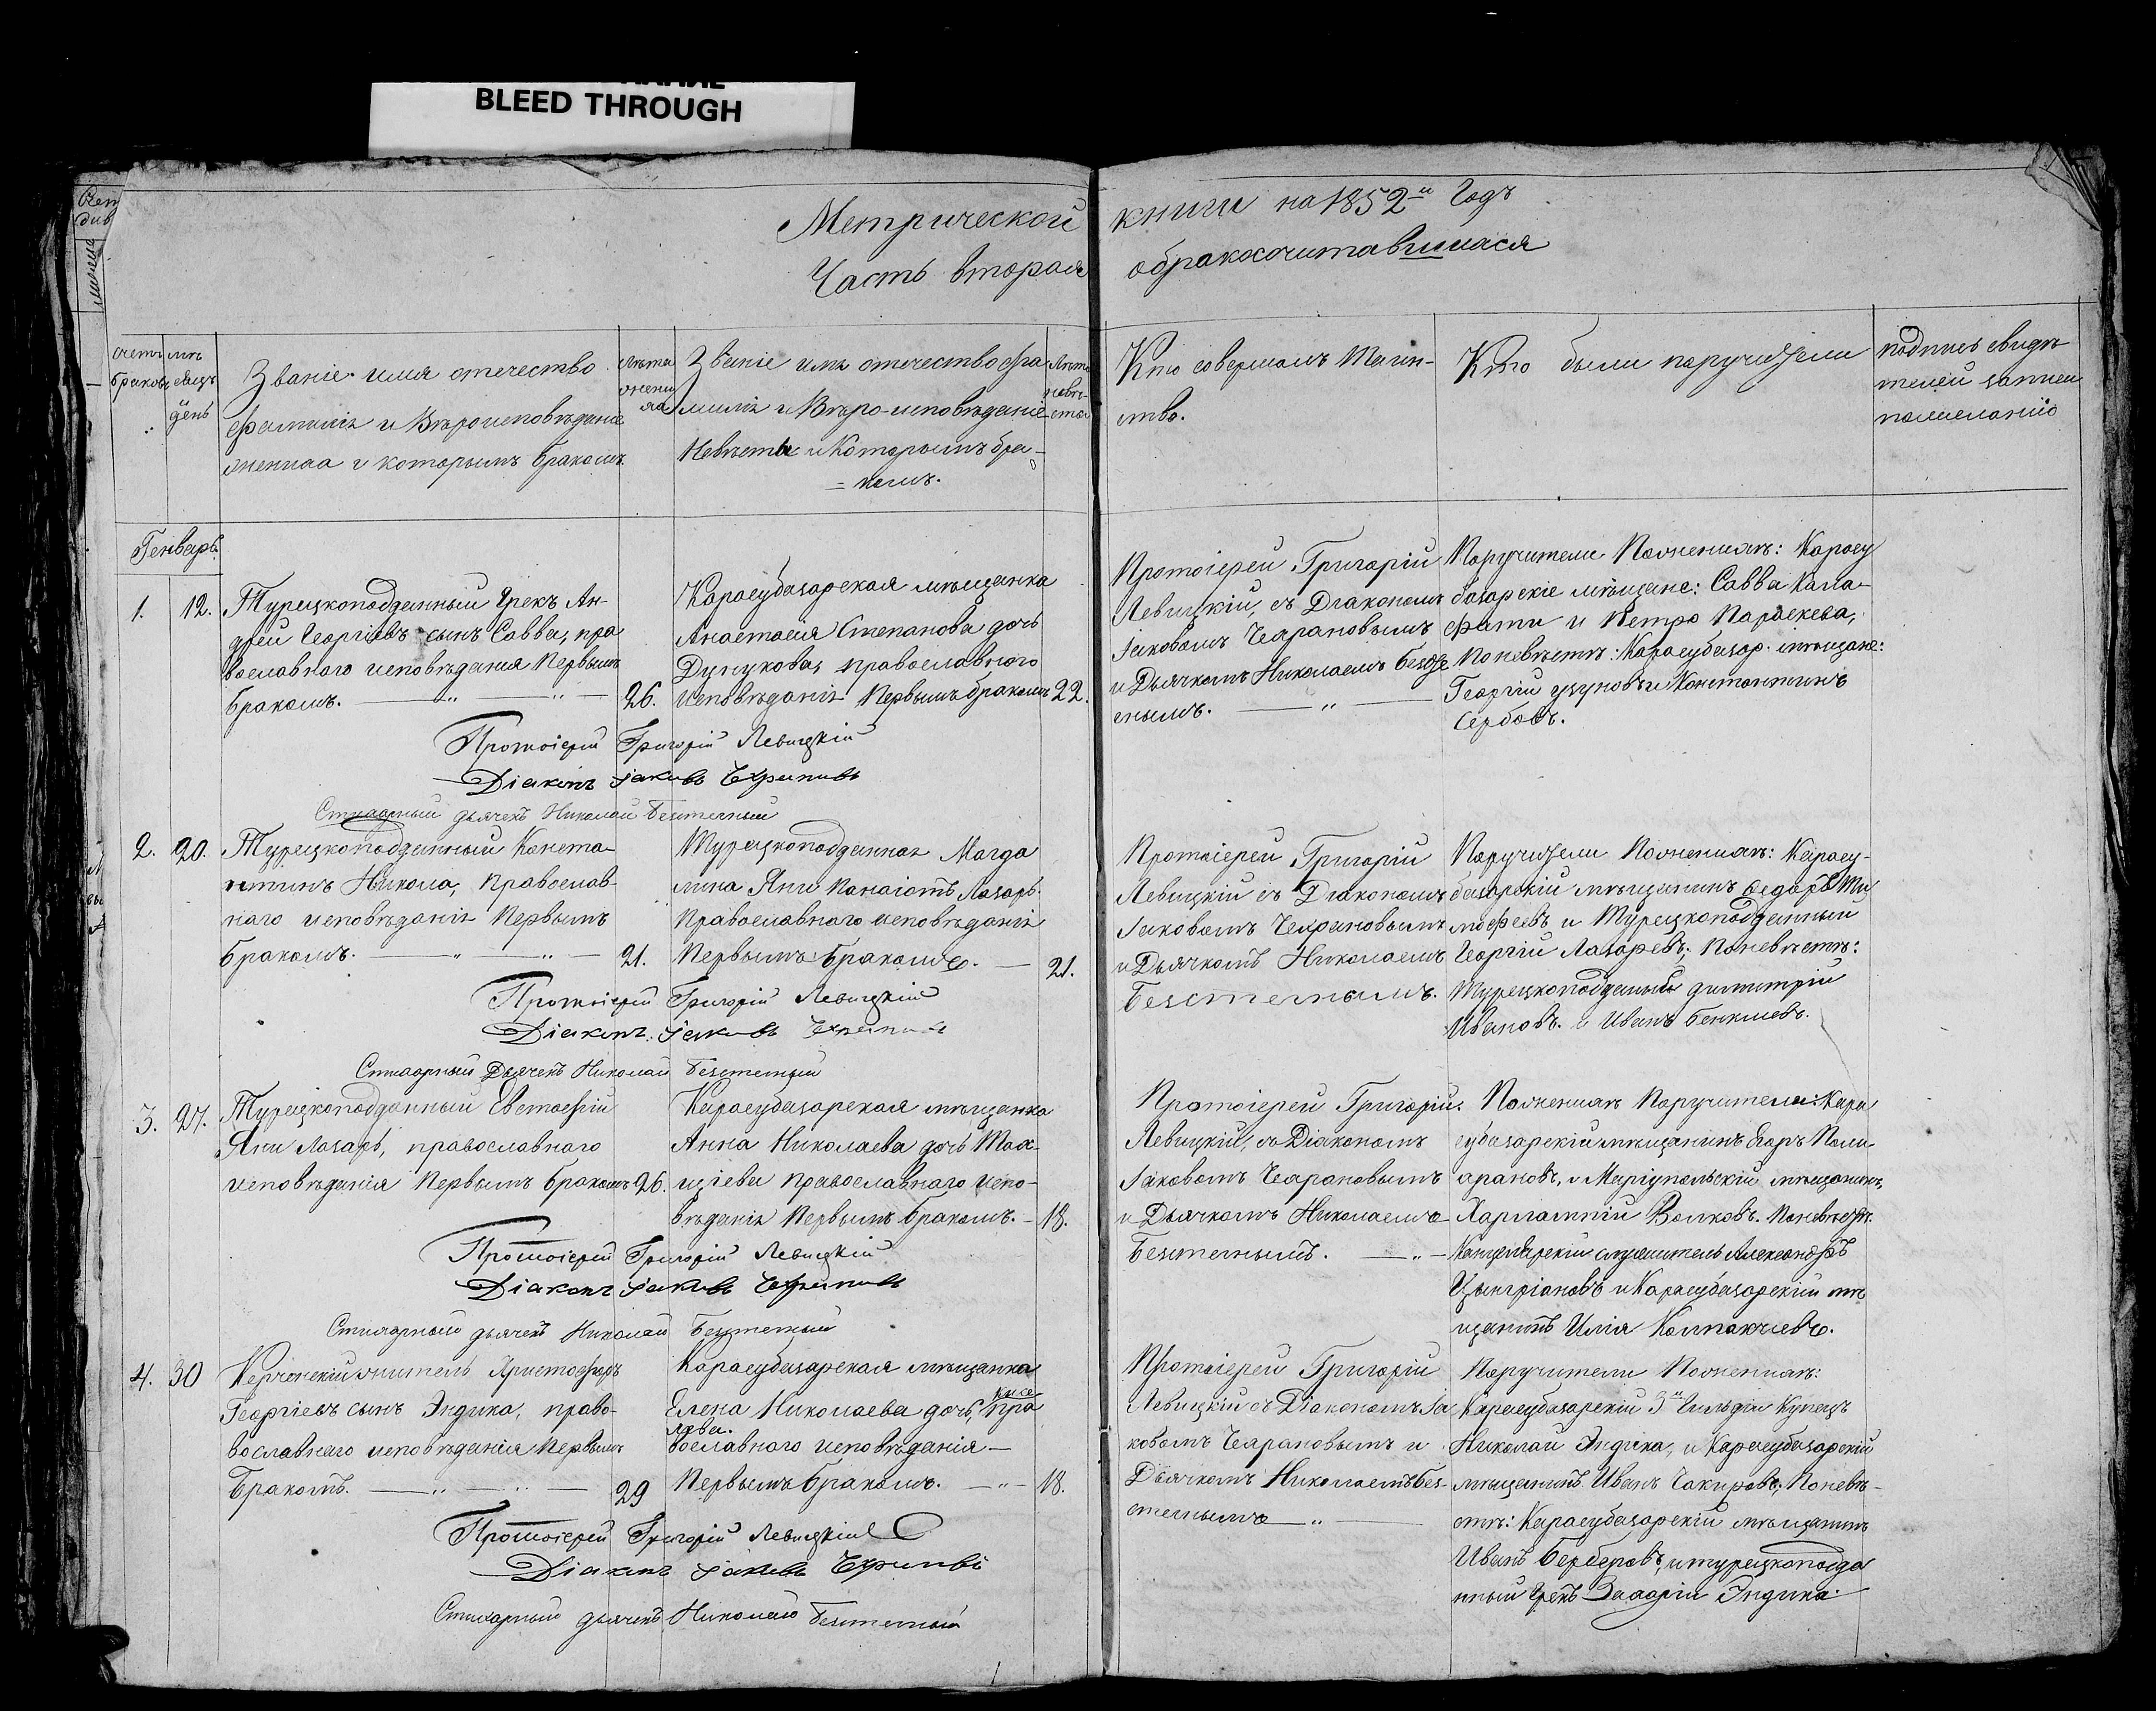 BLEED THROUGH
Метрической книги на 1852й Годъ
Часть вторая обракосочитавшихся
счетъ браковъ
мѣсяцъ день
Званіе имя отечество
фамилія и Вѣроисповѣданіе
жениха и которымъ бракомъ
лѣта жениха
Званіе имя отечество фа-
милія и Вѣро-исповѣданіе
Невѣсты и Которымъ бра-
=комъ.
Лѣта невѣсты
Кто совершалъ Таин-
ство.
Кто были поручители
подпись свидѣ-
телей записи
пожеланію
Генварь.
1. 12.
Турецкоподданный Грекъ Ан-
дрей Георгіевъ сынъ Савва, пра
вославного исповѣданія Первымъ
бракомъ. — „ „ — 26.
Карасубазарская мѣщанка
Анастасія Степанова дочь
Дунукова, православного
исповѣданія Первымъ бракомъ 22.
Протоіерей Григорій
Левицкій, съ Діакономъ
Іаковомъ Чехрановымъ
и Дьячкомъ Николаемъ Безсте
снымъ. — „ —
Поручители Поженихѣ: Карасу
базарскіе мѣщане: Савва Кала-
фати и Петро Параскева,
Поневѣстѣ: Карасубазар. мѣщане:
Георгій узуновъ и Константинъ
Сербовъ.
Протоіерей Григорій Левицкій
Діаконъ Іаковъ
Стихарный дьячекъ Николай
2. 20.
Турецкоподданный Конста-
нтинъ Никола, Православ-
наго исповѣданія Первымъ
бракомъ. — „ — „ — 21.
Турецкоподданная Магда
лина Яни Панаіотъ Лазарь.
Православного исповѣданія
Первымъ бракомъ. — 21.
Протоіерей Григорій
Левицкій съ Діакономъ
Іаковомъ Чехрановымъ
и Дьячкомъ Николаемъ
Поручители Поженихѣ: Карасу-
базарскій мѣщанинъ Ѳедоръ Ти
мофеевъ и Турецкоподданный
Георгій Лазаревъ; Поневѣстѣ:
Турецкоподданный димитрій
Ивановъ. и Иванъ
Протоіерей Григорій Левицкій
Діаконъ. Іаковъ
Стихарный Дьячекъ Николай
3. 27.
Турецкоподданный Евстафій
Яни Лазарь, православного
исповѣданія Первымъ бракомъ 26.
Карасубазарская мѣщанка
Анна Николаева дочь
православного испо-
вѣданія Первымъ бракомъ. — 18.
Протоіерей Григорій.
Левицкій, съ Діакономъ
Іаковомъ Чехрановымъ
и Дьячкомъ Николаемъ
Поженихѣ Поручители: Кара
субазарскій мѣщанинъ Егоръ
и Маріупольскій мѣщанинъ,
Харлампій Волковъ. Поневѣстѣ.
Канцелярскій служитель Александръ
и Карасубазарскій мѣ
щанинъ Илія Колпакчіевъ.
Протоіерей Григорій Левицкій
Діаконъ Іаковъ
Стихарный дьячекъ Николай
4. 30
Керченскій житель Христофоръ
Георгіевъ сынъ Эндика, право-
вославнаго исповѣданія Первымъ
Бракомъ. — „ — „ — 29
Карасубазарская мѣщанка
Елена Николаева дочь, пра
вославного исповѣданія —
Первымъ бракомъ. — „ — 18.
Протоіерей Григорій
Левицкій съ Діакономъ Іа
ковомъ Чехрановымъ и
Дьячкомъ Николаемъ Без-
Поручители Поженихѣ:
Карасубазарскій 3й Гильдіи Купецъ
Николай Эндика, и Карасубазарскій
мѣщанинъ Иванъ Чакировъ; Поневѣ-
стѣ: Карасубазарскій мѣщанинъ
Иванъ Берберовъ, и турецкоподда
нный Грекъ Эндика.
Протоіерей Григорій Левицкій
Діаконъ Іаковъ
Стихарный дьячекъ Николай